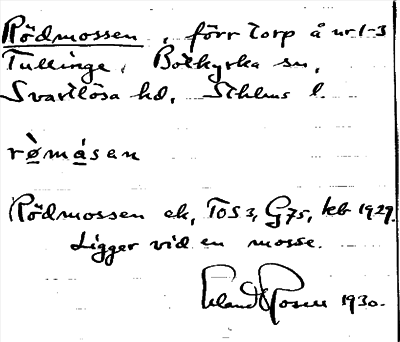 Rödmossen, förr torp å nr 1-3
Tullinge, Botkyrka sn,
Svartlösa hd, Sthlms l.
rò̤må̤sen
Rödmossen ek, TOS 3, G75, feb 1929.
Ligger vid en mosse.
Erland Rosell 1930.